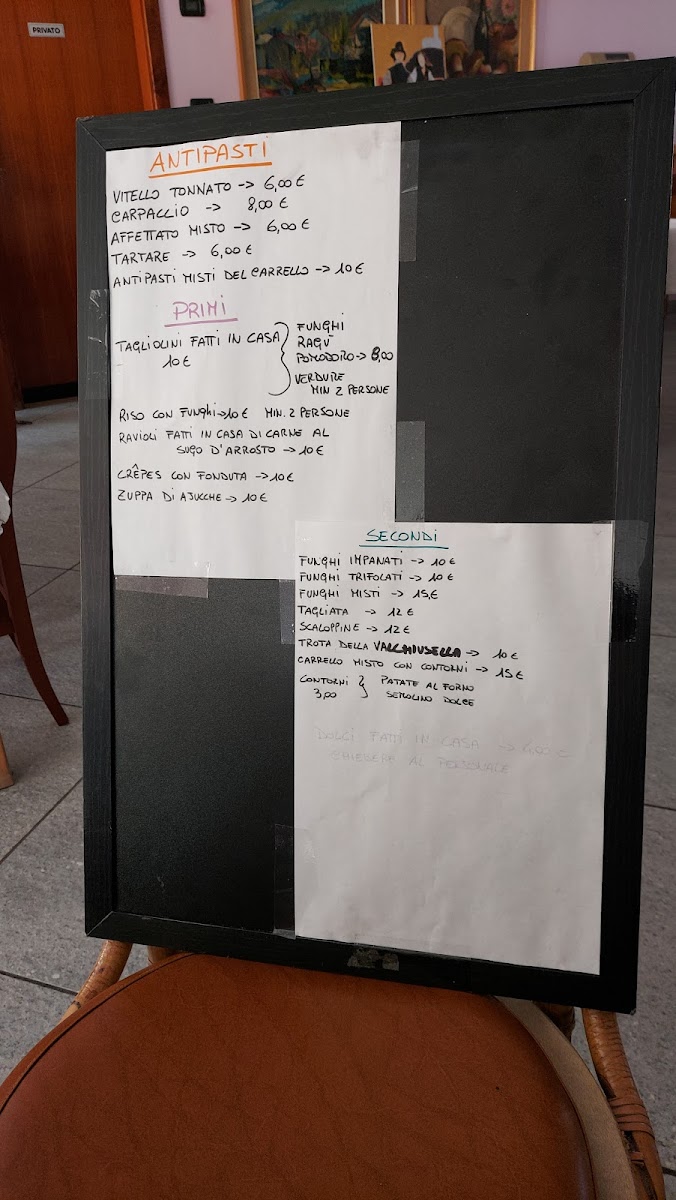 PRIVATO
ANTIPASTI
VITELLO TONNATO -> 6,00 €
CARPACCIO -> 8,00 €
AFFETTATO MISTO -> 6,00 €
TARTARE -> 6,00 €
ANTIPASTI MISTI DEL CARRELLO -> 10 €
PRIMI
TAGLIOLINI FATTI IN CASA
10 €
FUNGHI
RAGÙ
POMODORO -> 8,00
VERDURE
MIN 2 PERSONE
RISO CON FUNGHI -> 10 € MIN. 2 PERSONE
RAVIOLI FATTI IN CASA DI CARNE AL
SUGO D'ARROSTO -> 10 €
CRÊPES CON FONDUTA -> 10 €
ZUPPA DI AJUCCHE -> 10 €
SECONDI
FUNGHI IMPANATI -> 10 €
FUNGHI TRIFOLATI -> 10 €
FUNGHI MISTI -> 15,€
TAGLIATA -> 12 €
SCALOPPINE -> 12 €
TROTA DELLA VALCHIUSELLA -> 10 €
CARRELLO MISTO CON CONTORNI -> 15 €
CONTORNI } PATATE AL FORNO
3,00 SEMOLINO DOLCE
DOLCI FATTI IN CASA -> 6,00 €
CHIEDERE AL PERSONALE